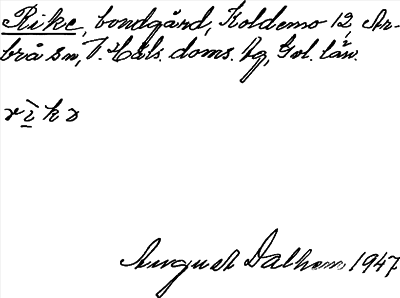 Rike, bondgård, Koldemo 12, Ar-
brå sn, V. Häls. doms. hg, Gvl. län.
rìkɘ
August Dalhem 1947